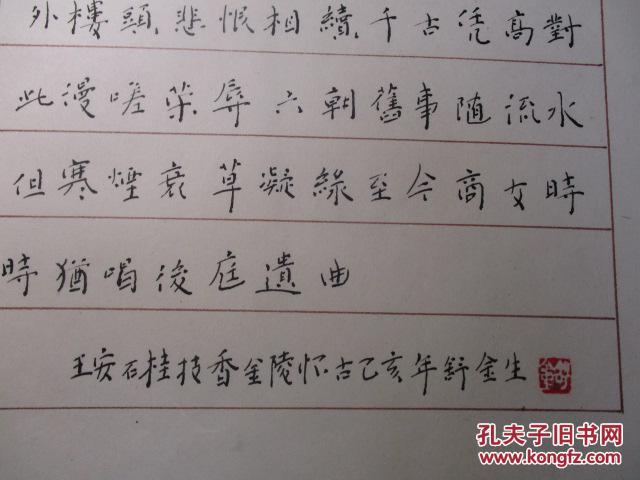 外樓頭悲恨相續千古凭高對
此漫嗟荣辱六朝舊事随流水
但寒煙衰草凝綠至今商女時
時猶唱後庭遺曲
王安石桂枝香金陵怀古乙亥年舒金生
孔夫子旧书网
www.kongfz.com